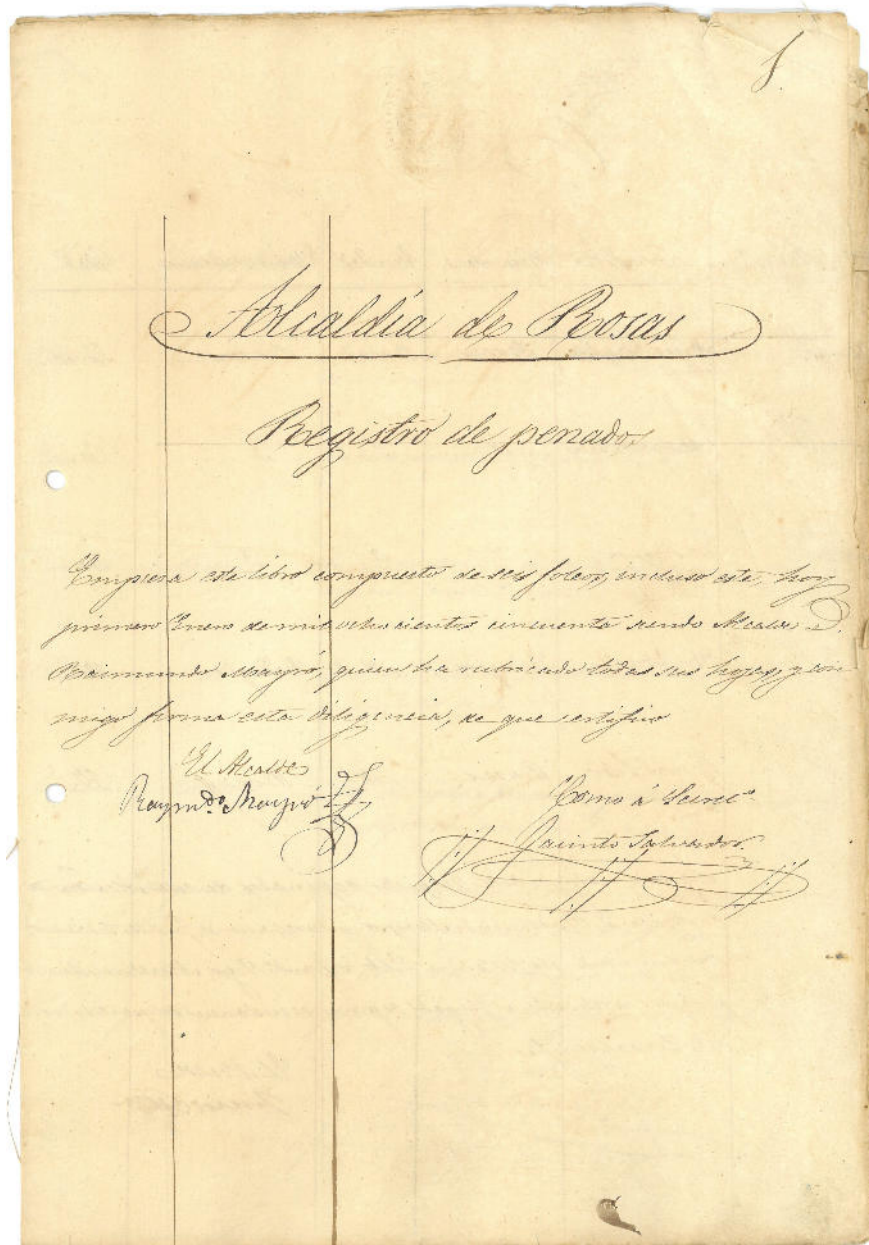 1.
Alcaldía de Rosas
Registro de penados
Empieza este libro compuesto de seis foleos, incluso este, hoy
primero Enero de mil ochocientos cincuenta siendo Alcalde D.
Raimundo Mayró, quien ha rubricado todas sus hojas, y con
migo firma esta diligencia, de que certifico
El Alcalde
Raym.do Mayró
Como á Secret.º
Jacinto Salvador